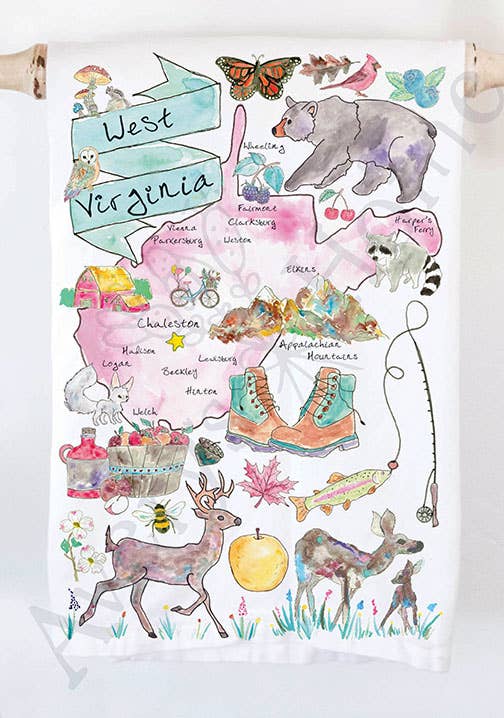 West
Virginia
Wheeling
Fairmont
Clarksburg
Weston
Vienna
Parkersburg
Harper's
Ferry
Elkins
Chaleston
Appalachian
Mountains
Madison
Logan
Lewisburg
Beckley
Hinton
Welch